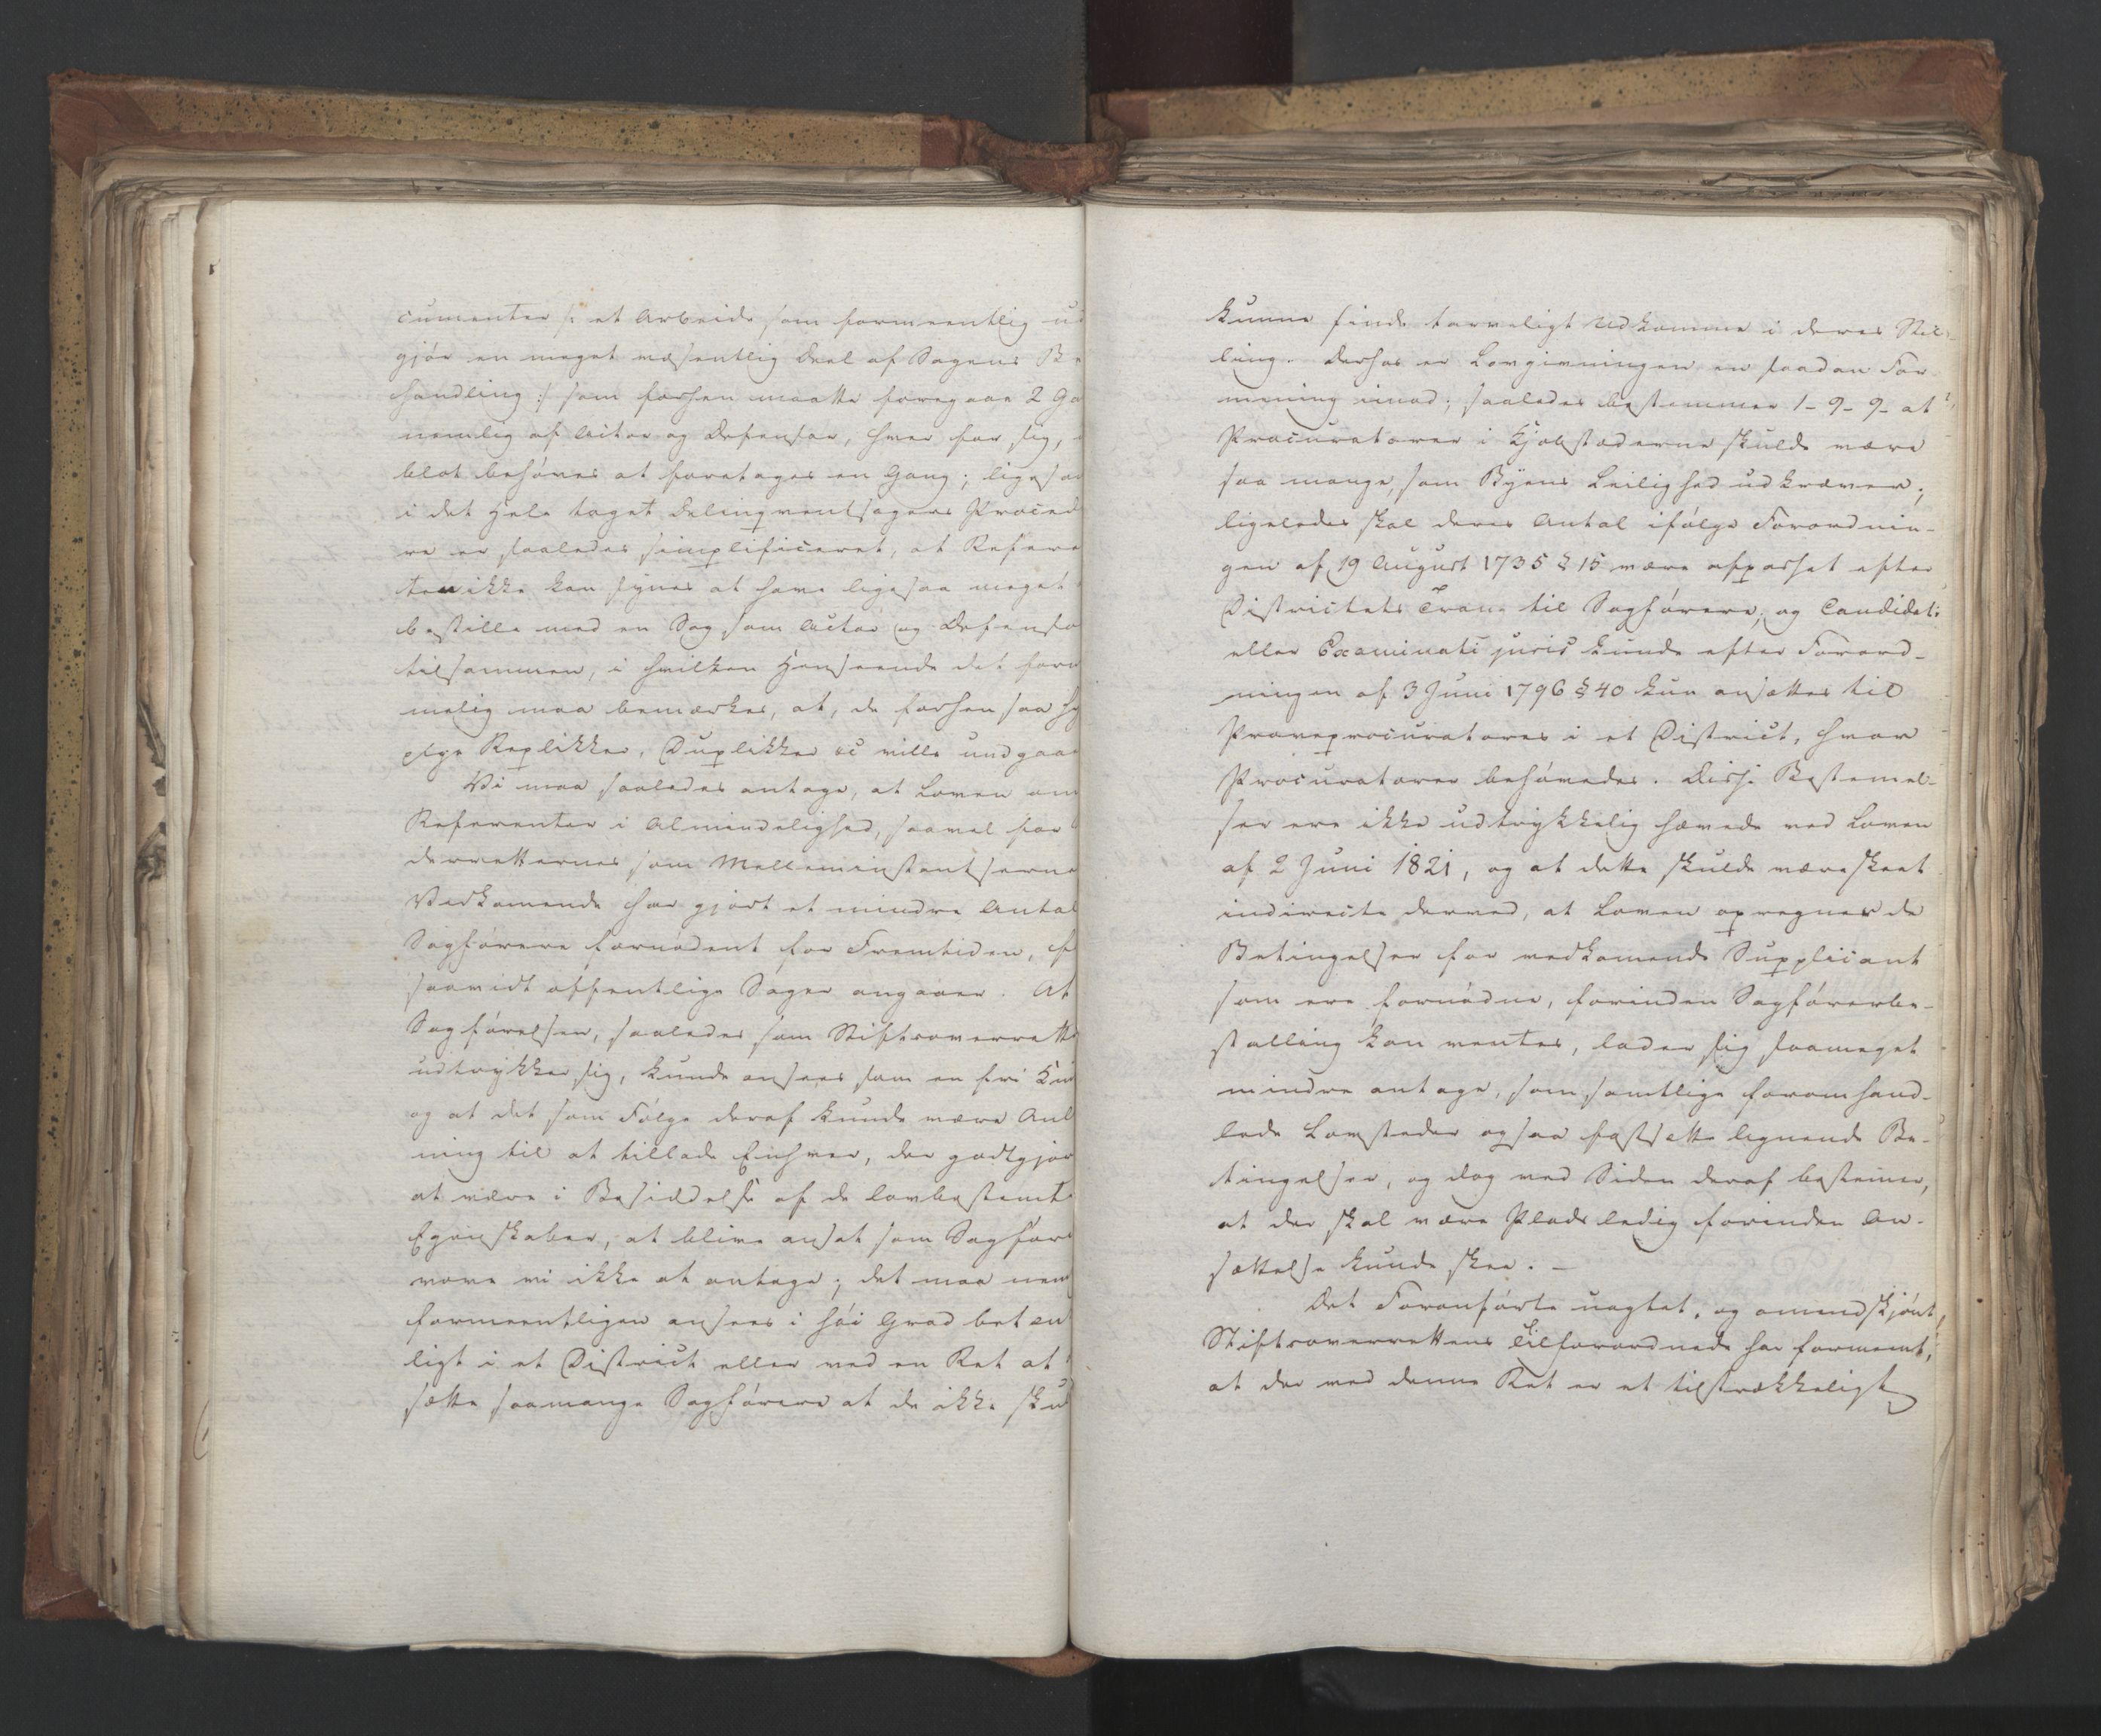 cumenter /: et Arbeide som formeentlig ud
gjør en meget væsentlig Deel af Sagens Be
handling :/ som forhen maatte foregaae 2 Ga
nemlig af Actor og Defensor, hver for sig,
blot behøves at foretages en Gang; ligesom
i det Hele taget Delinqventsagers Proced
re er saaledes simplificeret, at Refere
ten ikke kan synes at have ligesaa meget
bestille med en Sag som Actor og Defensor
tilsammen, i hvilken Henseende det for
melig maa bemærkes, at, de forhen saa hy
pige Replikker, Duplikker &c ville undgaae
Vi maa saaledes antage, at Loven om
Referenter i Almindelighed, saavel for
derretternes som Melleminstantserne
Vedkomende har gjort et mindre Antal
Sagførere fornødent for Fremtiden, f
saavidt offentlige Sager angaaer. At
Sagførelsen, saaledes som Stiftsoverrette
udtrykker sig, kunde ansees som en fri Kun
og at det som Følge deraf kunde være Anl
ning til at tillade Enhver, der godtgjør
at være i Besiddelse af de lovbestemte
Egenskaber, at blive ansat som Sagfører
vove vi ikke at antage; det maa nem
formeentligen ansees i høi Grad betæn
ligt i et District eller ved en Ret at
sætte saamange Sagførere at de ikke skul
kunne finde tarveligt Udkomme i deres Stil
ling. Derhos er Lovgivningen en saadan For
mening imod; saaledes bestemmer 1-9-9- at
Procuratorer i Kjøbstæderne skulde være
saa mange, som Byens Leilighed udkræver;
ligeledes skal deres Antal ifølge Forordnin-
gen af 19 August 1735 § 15 være afpasset efter
Districtets Trang til Sagførere; og Candidati
eller Examinati juris kunde efter Forord-
ningen af 3 Juni 1796 § 40 kun ansættes til
Prøveprocuratorer i et District, hvor
Procuratorer behøvedes. Disse Bestemel-
ser ere ikke udtrykkelig hævede ved Loven
af 2 Juni 1821, og at dette skulde være skeet
indirecte derved, at Loven opregner de
Betingelser for vedkomende Supplicant
som ere fornødne, forinden Sagførerbe-
stalling kan ventes, lader sig saameget
mindre antage, som samtlige foromhand-
lede Lovsteder ogsaa fastsætte lignende Be-
tingelser, og dog ved Siden deraf bestemer,
at der skal være Plads ledig forinden An-
sættelse kunde skee. -
Det Foranførte uagtet, og omendskjønt
Stiftsoverrettens Tilforordnede har formeent,
at der ved denne Ret er et tilstrækkeligt